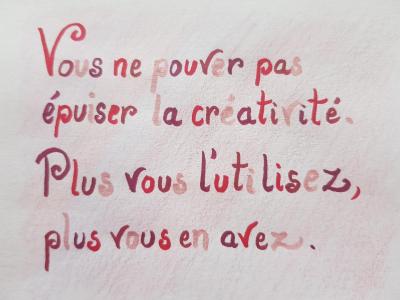 Vous ne pouver pas
épuiser la créativité.
Plus vous l'utilisez,
plus vous en avez.